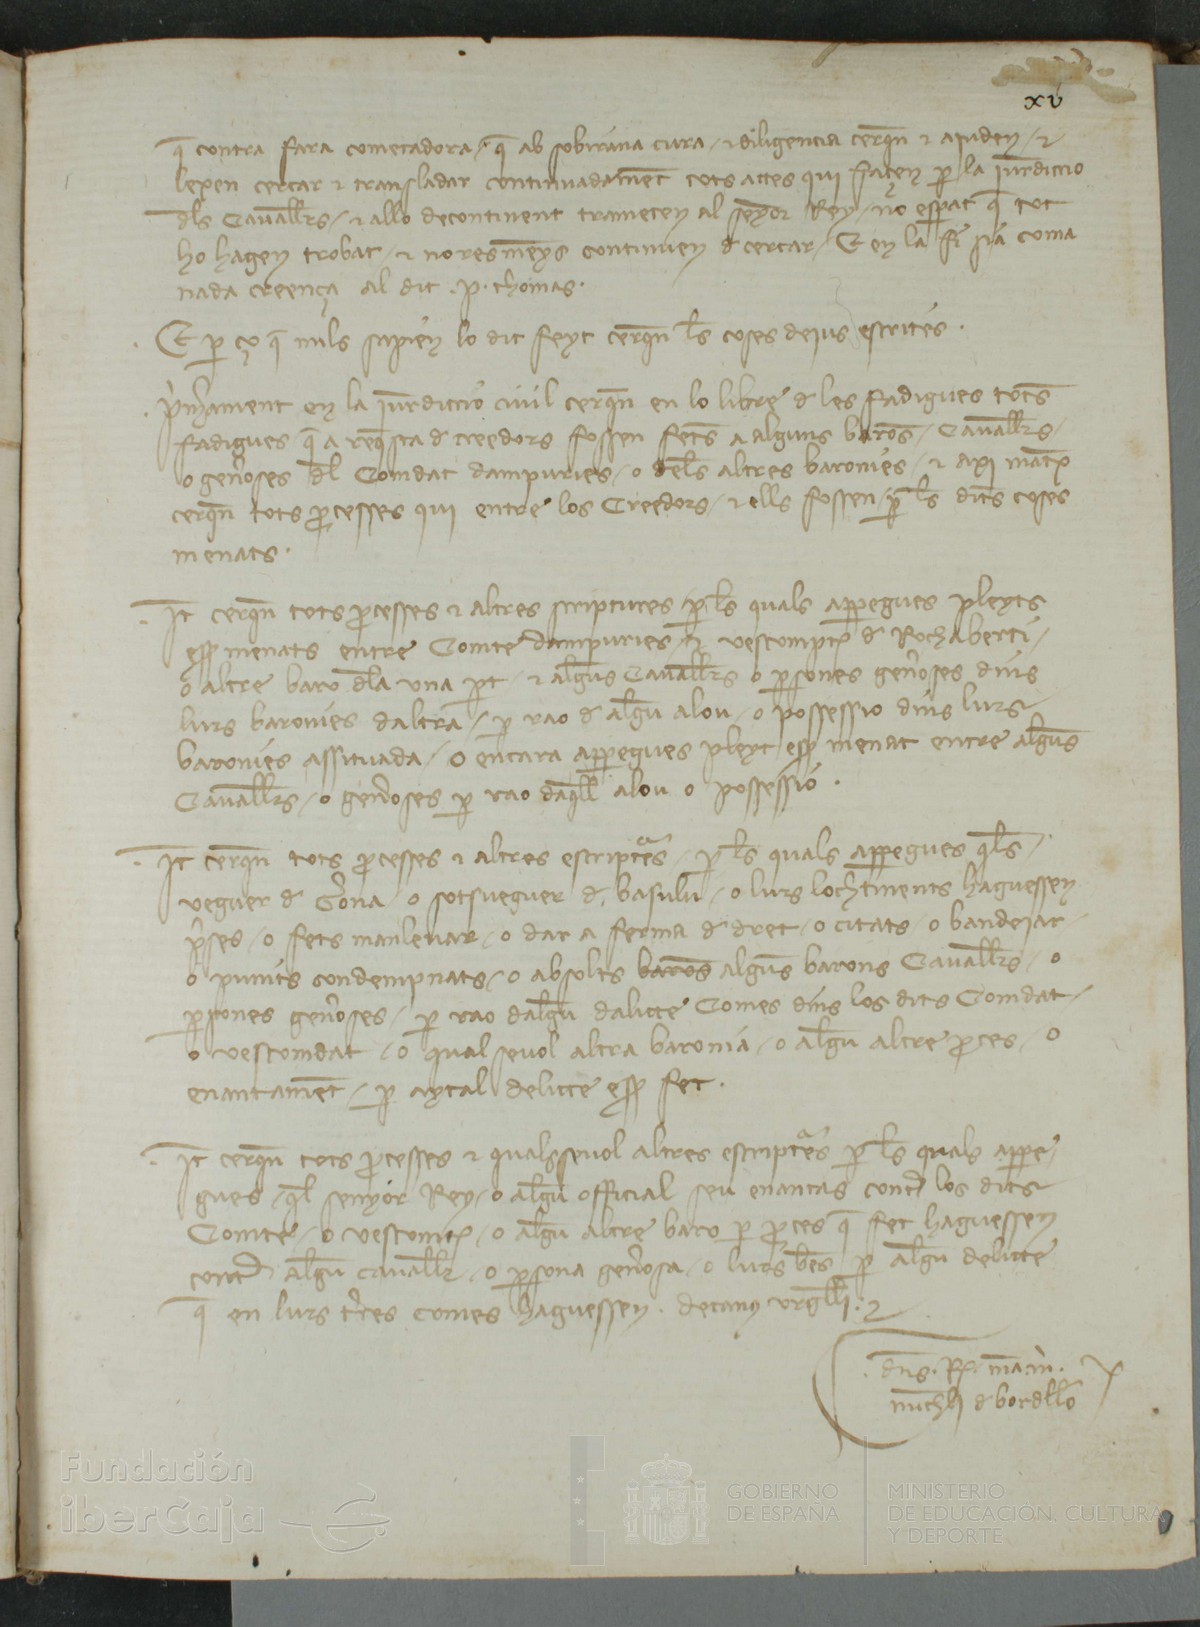 xv
q̄ contra fara cometadora / q̄ ab sobirana cura / ⁊ diligencia cerq̄n ⁊ aiuden / ⁊
lexen cercar ⁊ transladar continuadamēt tots actes qui facen p̱ la iur̄diccio
dl̄s Cauall̄rs / ⁊ allo decontinent trameten al senyor Rey / no esperat q̄ tot
ho hagen trobat / ⁊ noresmēys continuen d cercar / E en la fi sia coma
nada creença al dit . P . thomas .
E p̱ ço q̄ mils sapien lo dit feyt cerq̄n l̄s coses deius escrites .
P̄mament en la iur̄diccio ciuil cerq̄n en lo libre d les fadigues totēs
fadigues q̄ a req̄sta d creedors fossen fetēs a alguns barōs / Cauall̄rs /
o gen̄oses dl̄ Comdat dampuries / o dels altres baronies / ⁊ axi matex
cerq̄n tots p̱cesses qui entre los Creedors / ⁊ ells fossen / p̱ l̄s dites coses
menats .
It̄ cerq̄n tots p̱cesses ⁊ altres scriptures / p̱ l̄s quals appegues pleyts
ess̱ menats entre Comte dampuries / ⁊ vescompte d Rochaberti /
o altre baro dla una p̱t / ⁊ algūs Cauall̄rs o p̱sones gen̄oses dins
lurs baronies daltra / p̱ rao d algū alou / o possessio dins lurs
baronies assituada / o encara appegues pleyt ess̱ menat entre algūs
Cauall̄rs / o gen̄oses p̱ rao daq̄ll alou o possessio .
It̄ cerq̄n tots p̱cesses ⁊ altres escriptᵃes / p̱ l̄s quals appegues q̄ls /
veguer d Gȏna / o sotsueguer d basulu / o lurs loch̄tinents haguessen
p̄ses / o fets manleuar / o dar a ferma d dret / o citats / o bandeiar
o punits condempnats / o absolts barōs algūs barons Cauall̄rs / o
p̱sones gen̄oses / p̱ rao dalgū dalicte Comes dins los dits Comdat /
o vescomdat / o qual seuol altra baronia / o algū altre p̱ces / o
enantamēt / p̱ aytal delicte ess̱ fet .
It̄ cerq̄n tots p̱cesses ⁊ qualsseuol altres escriptᵃes p̱ l̄s quals appe
gues / q̄l senyor Rey / o algū official seu enantas contᵃ los dits
Comte / o vescomte / o algū altre baro p̱ p̱ces q̄ fet haguessen
contᵃ algū cauall̄r / o p̱sona gen̄osa / o lurs bēs p̱ algū delicte
q̄ en lurs t̄res comes haguessen . decany urgell̄i . ⁊
. dn̄s . Rx . man̄